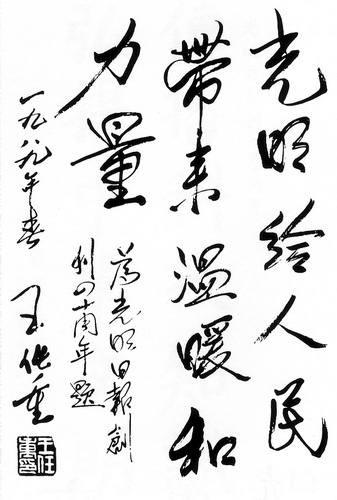 光明給人民
帶来温暖和
力量
為光明日報創
刊四十周年題
一九八九年春
王任重
王任重印